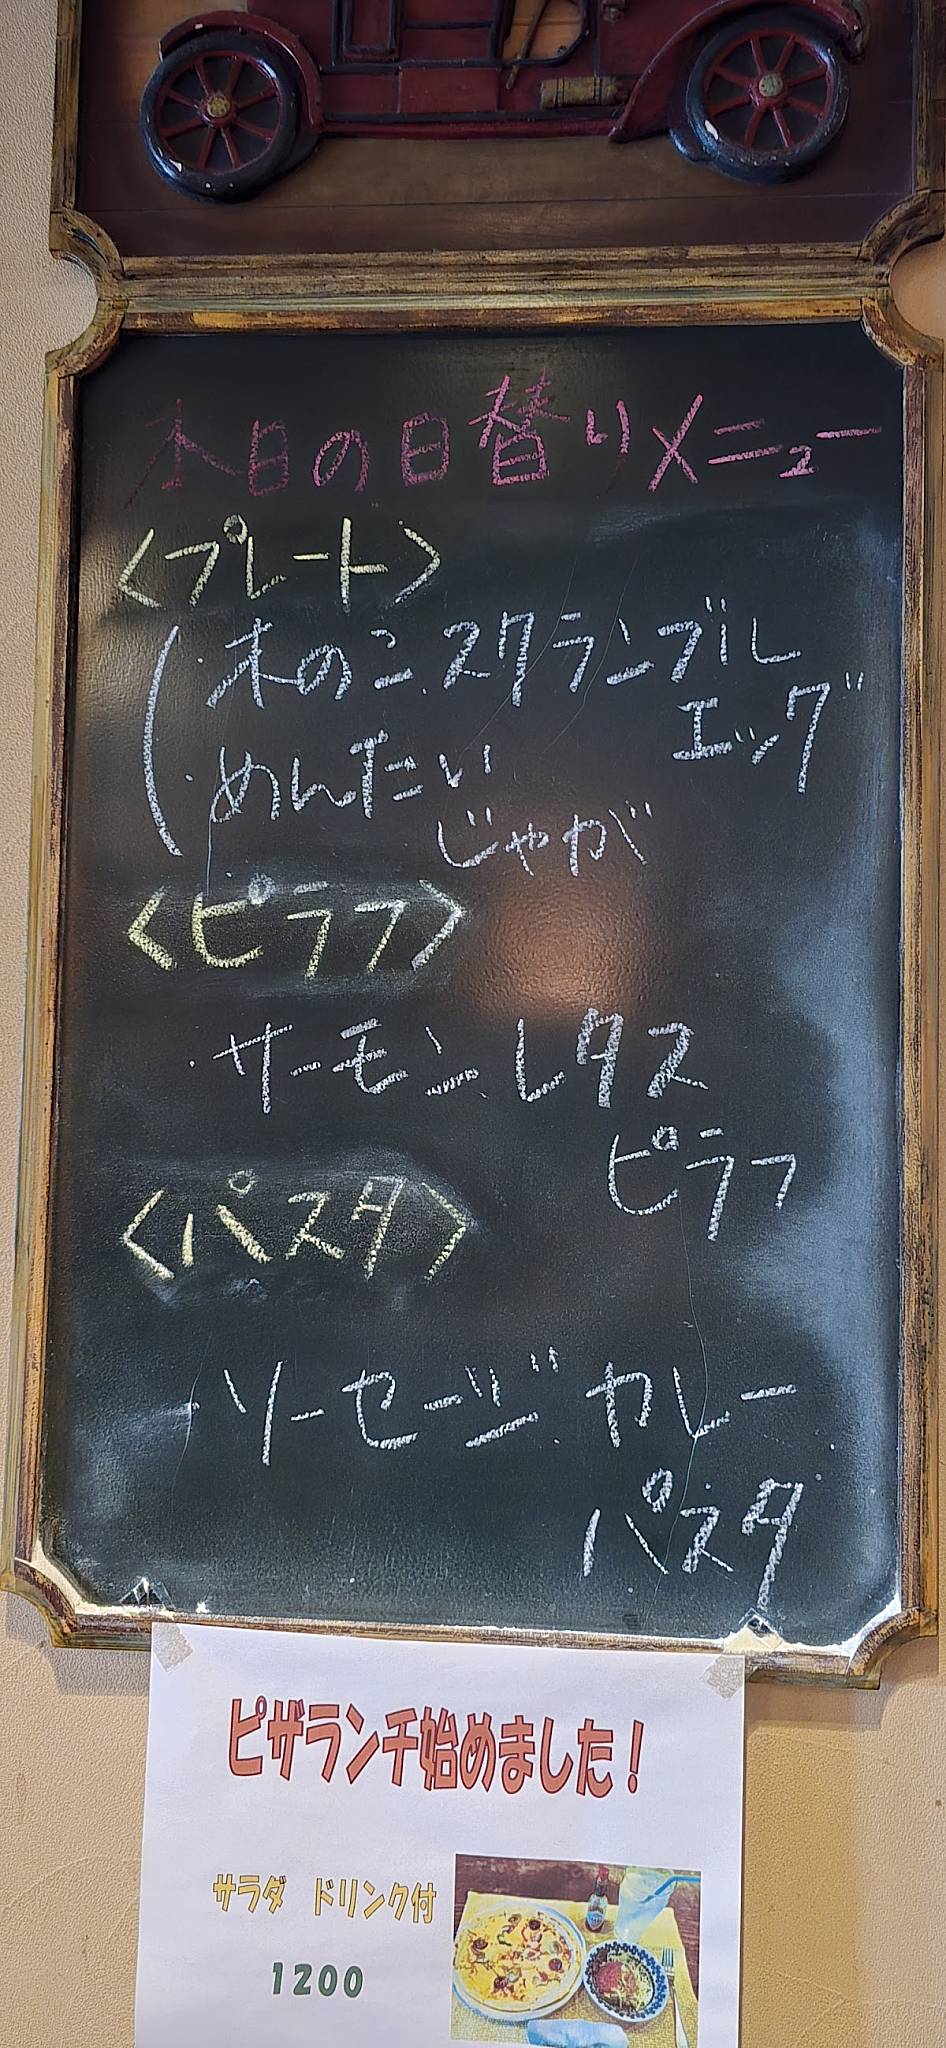 本日の日替りメニュー
〈プレート〉
・木のこスクランブル
エッグ
・めんたい
じゃが
〈ピラフ〉
・サーモンレタス
ピラフ
〈パスタ〉
ソーセージカレー
パスタ
ピザランチ始めました!
サラダ ドリンク付
1200